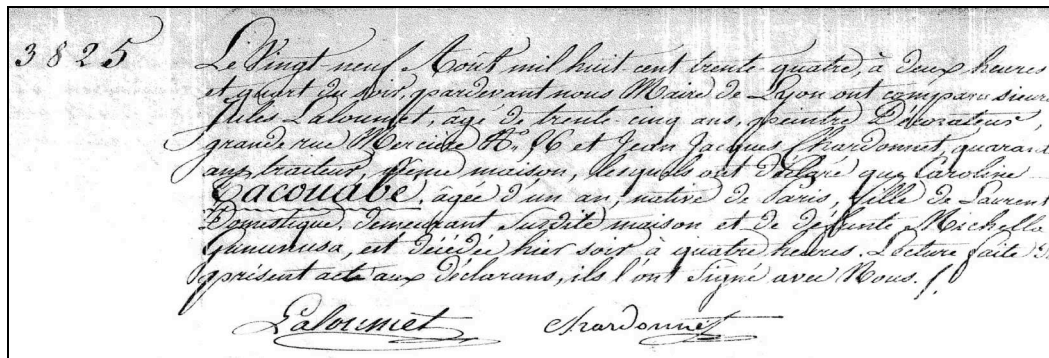 3825
Le Vingt neuf Août mil huit cent trente quatre, à deux heures
et quart du soir, pardevant nous Maire de Lyon ont comparu sieurs
Jules Laloumet, âgé de trente cinq ans, peintre Décorateur,
grande rue Mercière N° 56 et Jean Jacques Chardonnet, quarante
ans, traiteur, même maison, lesquels ont déclaré que Caroline
Tacouabé, âgée d'un an, native de Paris, fille de Laurent
Domestique, demeurant susdite maison et de défunte Michella
Gunumusa, est décédée hier soir à quatre heures. Lecture faite du
présent acte aux déclarans, ils l'ont signé avec Nous.
Laloumet Chardonnet